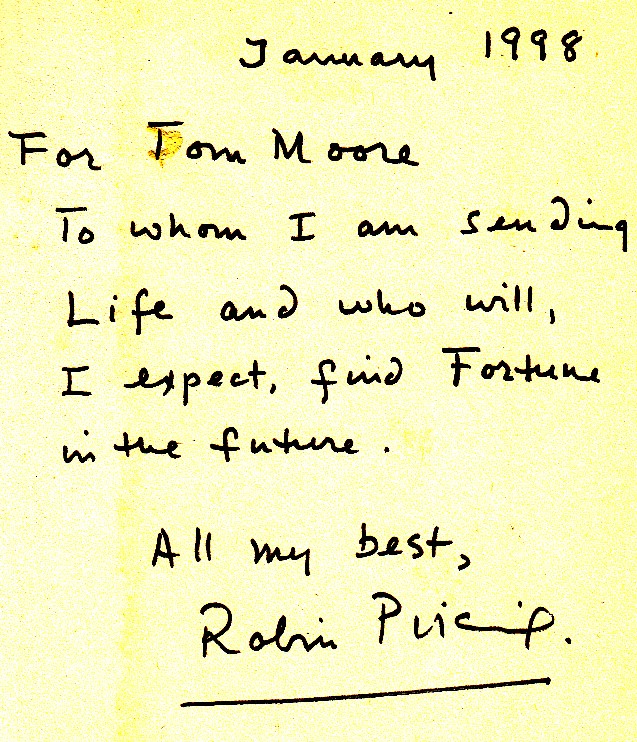 January 1998
For Tom Moore
To whom I am sending
Life and who will,
I expect, find Fortune
in the future.
All my best,
Robin